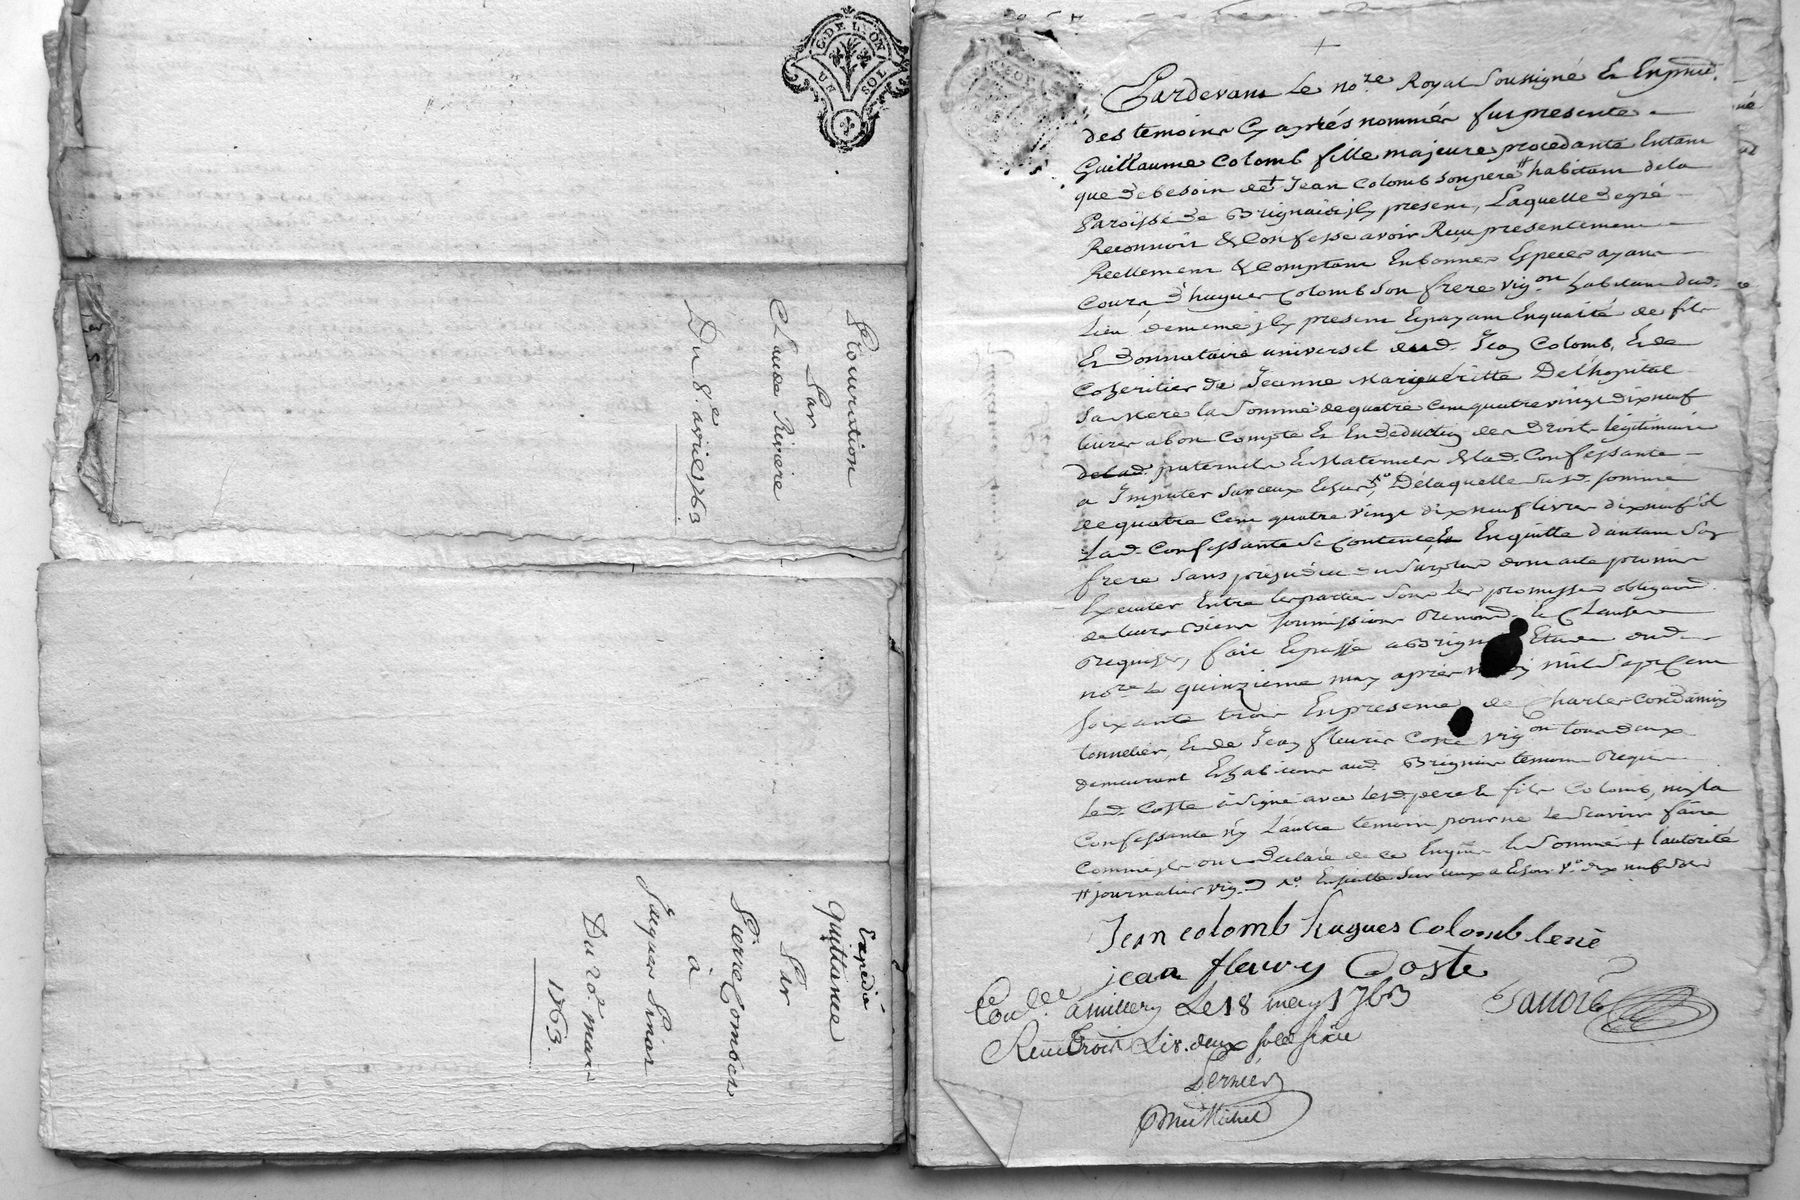 G. DE LYON
UN SOL
Procuration
Par
Claude Riviere
Du 8e. avril 1763
Expédié
Quittance
Par
Pierre Combet
à
Jacques
Du 20e. mars
1763.
Pardevant le nore. Royal soussigné & En pnce.
des temoins Cy aprés nommés fut presente
Guillaume Colomb fille majeure procedante Entant
que de besoin de + Jean Colomb son pere # habitant de la
Paroisse de Brignais icy present, Laquelle de gré
Reconnoit & Confesse avoir Reçu presentement
Réellement & Comptant En bonnes Especes ayant
Cours d'hugues Colomb son frere vigon habitant dud.
Lieu de meme icy present Epayant En qualité de fils
Et Donnataire universel dud. Jean Colomb, Et de
Coheritier de Jeanne Margueritte Delhopital
sa Mere la somme de quatre Cent quatre vingt dix neuf
livres a bon Compte Et En deduction des Droits légitimaires
delad. paternels Et Maternels de lad. Confessante
a Imputer sur ceux De laquelle susd. somme
de quatre Cent quatre vingt dix neuf livres dix neuf sol
Lad. Confessante se Contente & En quitte d'autant son
frere sans prejudice du surplus dont acte promis
Executer Entre les parties sous les promisses obligaons.
de leurs Biens soumissions Renonc. & Clauses
Requises, fait Epassé a Brignais Etude dud.
nore. le quinzieme may aprés midy mil sept Cent
soixante trois En presence de Charles Condamin
tonnelier, Et de Jean fleury Coste vigon tous deux
demeurant Et habitans aud. Brignais temoins Requis
Led. Coste a signé avec lesd. pere & fils Colomb, ny la
Confessante n'y L'autre temoin pour ne le scavoir faire
Comme ils ont declaré de ce Enquis & sommés + l'autorité
# journalier vig.
Jean colomb hugues Colomb
jean fleury Coste
Conlle. a millery Le 18 may 1763
Reçu trois Liv. deux sols six d